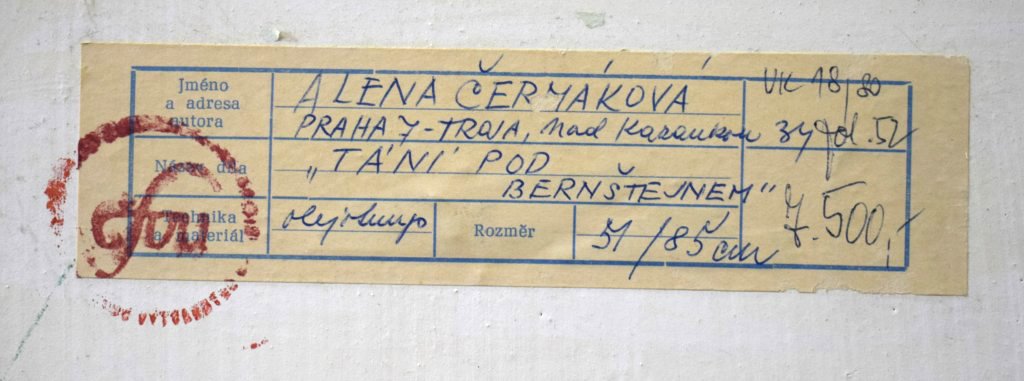 Jméno
a adresa
autora
ALENA ČERMÁKOVÁ
VK 18/80
PRAHA 7-TROJA, Nad Kazankou 34
Název díla
„TÁNÍ POD
BERNŠTEJNEM“
7.500,-
Technika
a materiál
olej
Rozměr
51/85 cm